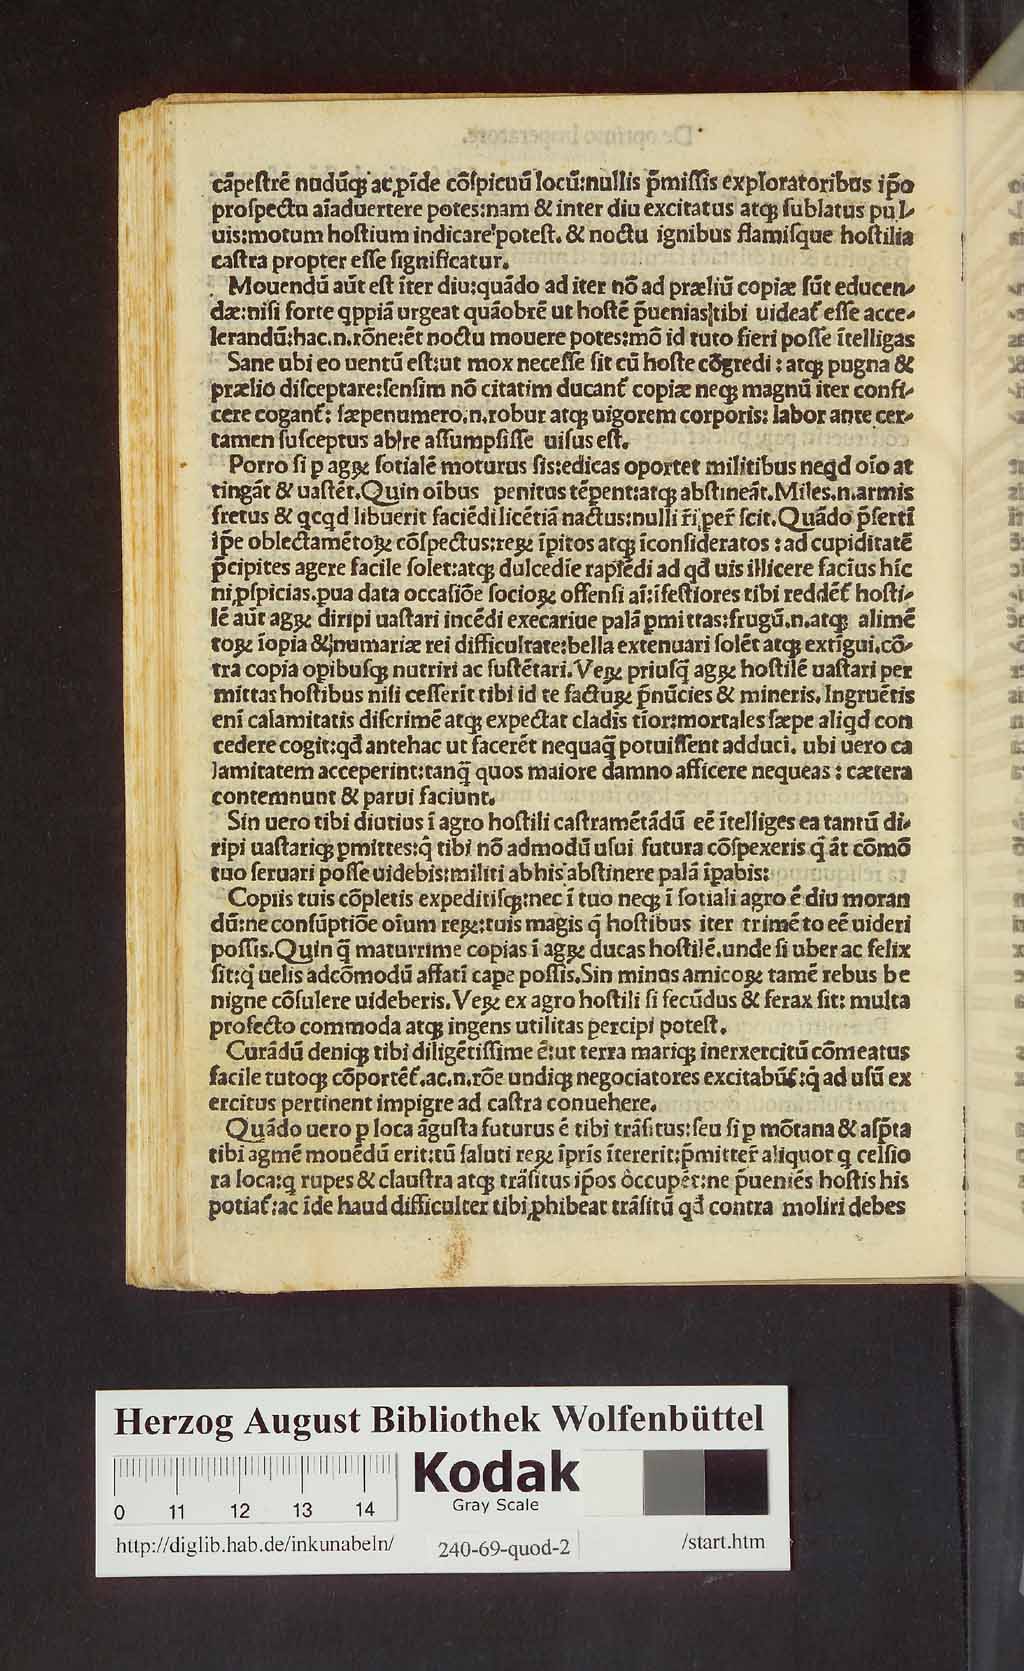 cāpeſtrē nudūqꝫ ac ꝓīde cōſpicuū locū:nullis p̄miſſis exploratoribus ip̄o
proſpectu aīaduertere potes:nam & inter diu excitatus atqꝫ ſublatus pul⸗
uis:motum hoſtium indicare poteſt. & noctu ignibus flamiſque hoſtilia
caſtra propter eſſe ſignificatur.
Mouendū aūt eſt īter diu:quādo ad iter nō ad præliū copiæ ſūt educen⸗
dæ:niſi forte qppiā urgeat quāobrē ut hoſtē p̄uenias tibi uideat̄ eſſe acce⸗
lerandū:hac.n.rōne:ēt noctu mouere potes:mō id tuto fieri poſſe ītelligas
Sane ubi eo uentū eſt:ut mox neceſſe ſit cū hoſte cōgredi : atqꝫ pugna &
prælio diſceptare:ſenſim nō citatim ducant̄ copiæ neqꝫ magnū iter confi⸗
cere cogant̄: ſæpenumero.n.robur atqꝫ uigorem corporis: labor ante cer⸗
tamen ſuſceptus ab re aſſumpſiſſe uiſus eſt.
Porro ſi ꝑ agꝝ ſotialē moturus ſis:edicas oportet militibus neqd oīo at
tingāt & uaſtēt.Quin oībus penitus tēpent:atqꝫ abſtineāt.Miles.n.armis
fretus & qcqd libuerit faciēdi licētiā nactus:nulli r̄i ꝑer̄ ſcit.Quādo p̄ſertī
ip̄e oblectamētoꝝ cōſpectus:reꝝ īpitos atqꝫ īconſideratos : ad cupiditatē
p̄cipites agere facile ſolet:atqꝫ dulcedīe rapiēdi ad qd̄ uis illicere facius hīc
ni ꝓſpicias.pua data occaſiōe ſocioꝝ offenſi aī:īfeſtiores tibi reddēt̄ hoſti⸗
lē aūt agꝝ diripi uaſtari incēdi execariue palā ꝑmittas:frugū.n.atqꝫ alimē
toꝝ īopia & numariæ rei difficultate:bella extenuari ſolēt atqꝫ extīgui.cō⸗
tra copia opibuſqꝫ nutriri ac ſuſtētari.Veꝝ priuſq̄ agꝝ hoſtilē uaſtari per
mittas hoſtibus niſi ceſſerit tibi id te factuꝝ p̄nūcies & mineris.Ingruētis
enī calamitatis diſcrimē atqꝫ expectat cladis tīor:mortales ſæpe aliqd con
cedere cogit:qd̄ antehac ut facerēt nequaq̄ potuiſſent adduci. ubi uero ca
lamitatem acceperint:tanq̄ quos maiore damno afficere nequeas : cætera
contemnunt & parui faciunt.
Sin uero tibi diutius ī agro hoſtili caſtramētādū eē ītelliges ea tantū di⸗
ripi uaſtariqꝫ ꝑmittes:q̄ tibi nō admodū uſui futura cōſpexeris q̄ āt cōmō
tuo ſeruari poſſe uidebis:militi abhis abſtinere palā īpabis:
Copiis tuis cōpletis expeditiſqꝫ:nec ī tuo neqꝫ ī ſotiali agro ē diu moran
dū:ne conſūptiōe oīum reꝝ:tuis magis q̄ hoſtibus iter trimēto eē uideri
poſſis.Quin q̄ maturrime copias ī agꝝ ducas hoſtilē.unde ſi uber ac felix
ſit:q̄ uelis adcōmodū affatī cape poſſis.Sin minus amicoꝝ tamē rebus be
nigne cōſulere uideberis.Veꝝ ex agro hoſtili ſi fecūdus & ferax ſit: multa
profecto commoda atqꝫ ingens utilitas percipi poteſt.
Curādū deniqꝫ tibi diligētiſſime ē:ut terra mariqꝫ inerxercitū cōmeatus
facile tutoqꝫ cōportēt̄.ac.n.rōe undiqꝫ negociatores excitabūt̄:q̄ ad uſū ex
ercitus pertinent impigre ad caſtra conuehere.
Quādo uero ꝑ loca āguſta futurus ē tibi trāſitus:ſeu ſi ꝑ mōtana & aſp̄ta
tibi agmē mouēdū erit:tū ſaluti reꝝ īpris ītererit:p̄mitter̄ aliquot q celſio
ra loca:q rupes & clauſtra atqꝫ trāſitus ip̄os occupēt:ne p̄ueniēs hoſtis his
potiat̄:ac īde haud difficulter tibi ꝓhibeat trāſitū qd̄ contra moliri debes
Herzog August Bibliothek Wolfenbüttel
Kodak
Gray Scale
0 11 12 13 14
http://diglib.hab.de/inkunabeln/
240-69-quod-2
/start.htm